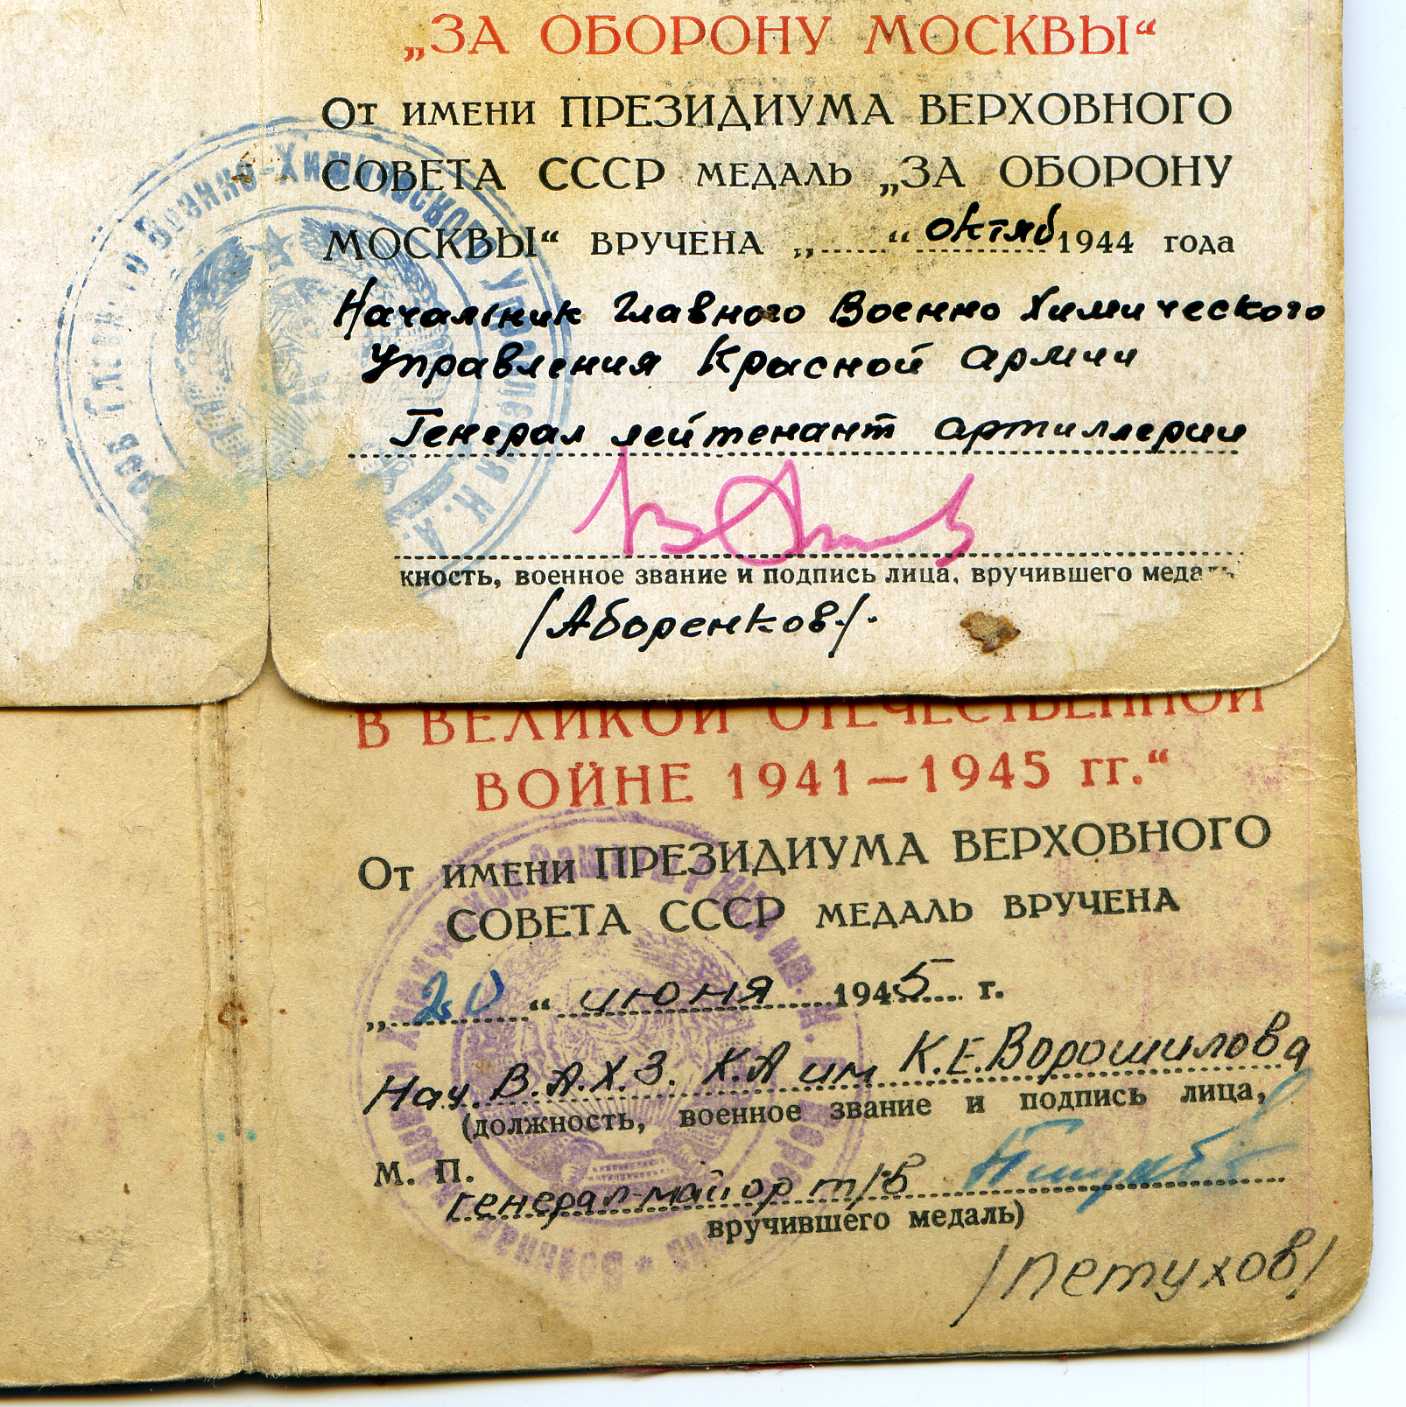 „ЗА ОБОРОНУ МОСКВЫ“
От имени ПРЕЗИДИУМА ВЕРХОВНОГО
СОВЕТА СССР медаль „ЗА ОБОРОНУ
МОСКВЫ“ вручена „......“ октяб 1944 года
Начальник Главного Военно Химического
Управления Красной армии
Генерал лейтенант артиллерии
кность, военное звание и подпись лица, вручившего медаль
/Аборенков/.
В ВЕЛИКОЙ ОТЕЧЕСТВЕННОЙ
ВОЙНЕ 1941—1945 гг.“
От имени ПРЕЗИДИУМА ВЕРХОВНОГО
СОВЕТА СССР медаль вручена
„20“ июня 1945 г.
Нач. В.А.Х.З. К.А им К.Е.Ворошилова
(должность, военное звание и подпись лица,
М. П.
генерал-майор т/в
вручившего медаль)
/Петухов/